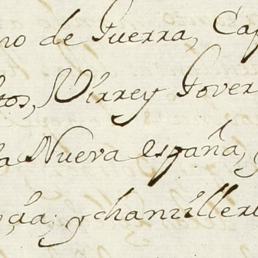 no de Guerra, Cap
tos, Virrey Gover
la Nueva españa, y
çia; y chanziller